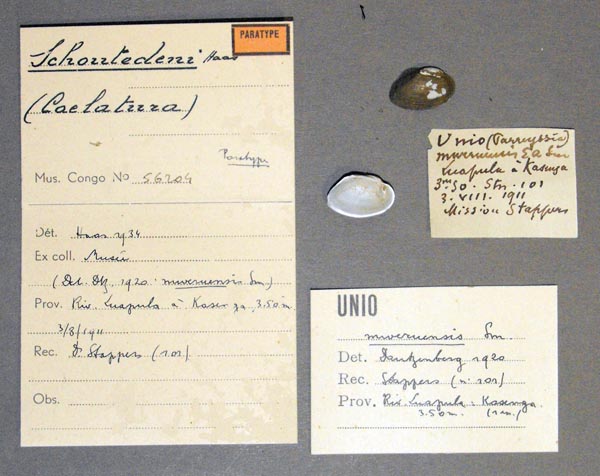 PARATYPE
Schoutedeni Haas
(Caelatura)
Paratype
Mus. Congo No 56204
Dét. Haas 1934
Ex coll. Musée
(Det. Dtz. 1920. mweruensis Sm.)
Prov. Riv. Luapula à Kasenga, 3.50 m.
3/8/1911
Rec. Dr Stappers (101)
Obs.
Unio (Parreyssia)
mweruensis E.A. Sm
Luapula à Kasenga
3m50. Stn. 101
3. VIII. 1911
Mission Stappers
UNIO
mweruensis Sm.
Det. Dautzenberg 1920
Rec. Stappers (n. 101)
Prov. Riv. Luapula : Kasenga.
3.50 m.